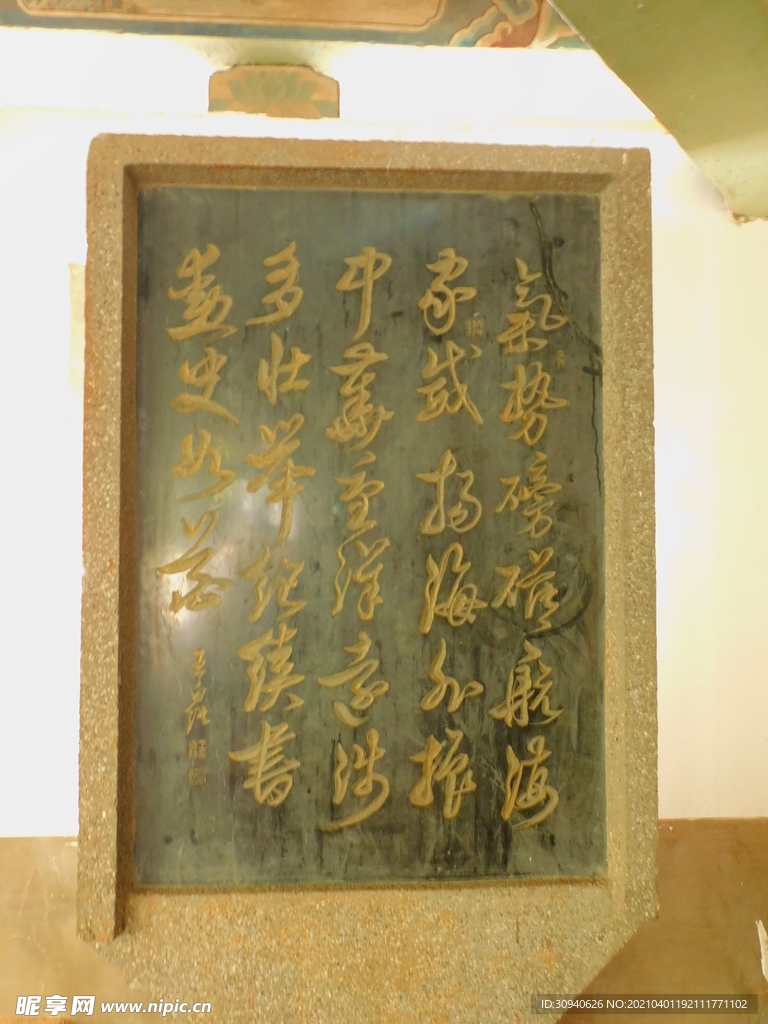 氣勢磅礴航海
家威揚海外振
中華重洋遠涉
多壯舉紀績書
史如花
昵享网 www.nipic.cn
ID:30940626 NO:20210401192111771102